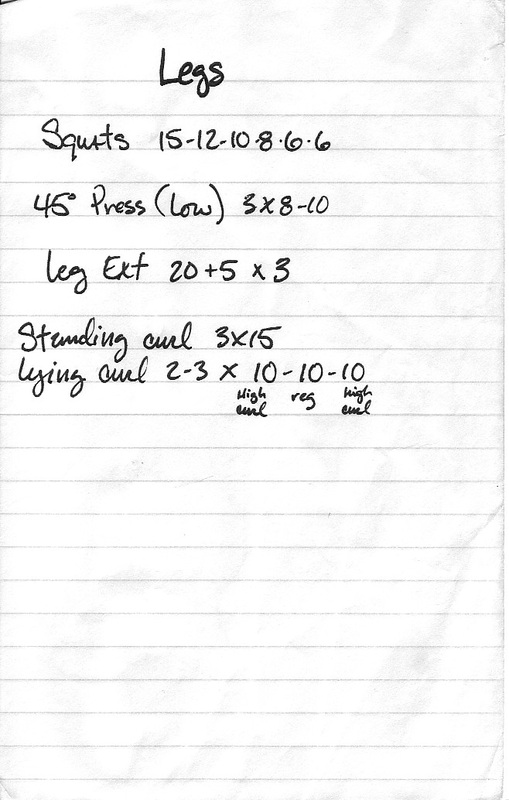 Legs
Squats 15-12-10-8-6-6
45° Press (Low) 3x8-10
Leg Ext 20+5 x 3
Standing curl 3x15
Lying curl 2-3 x 10-10-10
High curl reg High curl